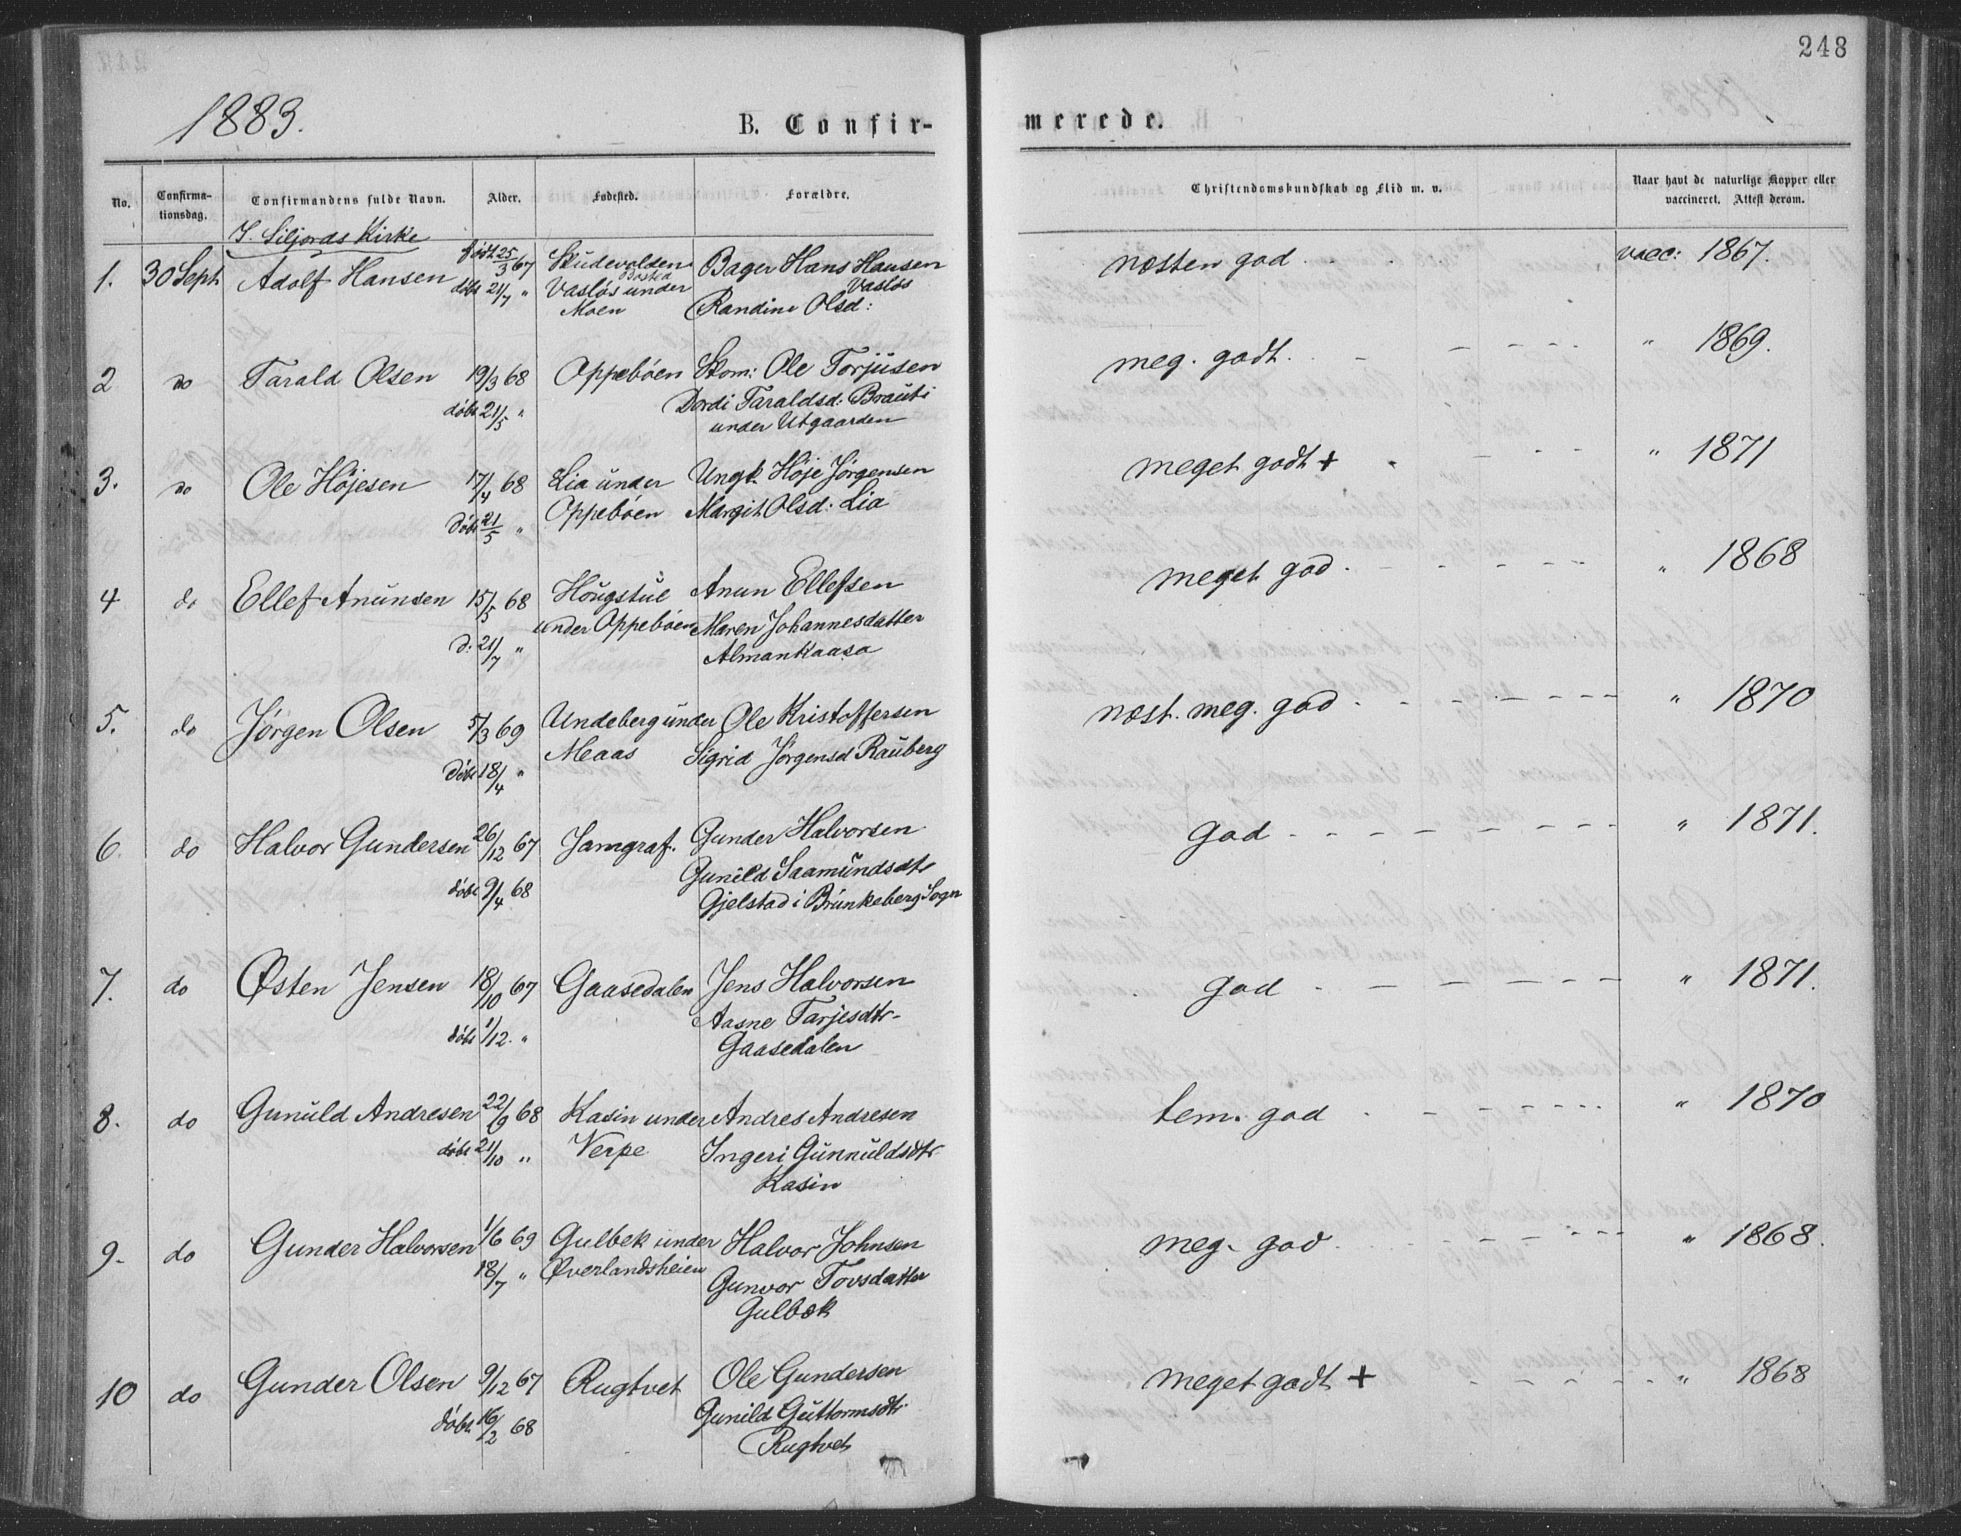 248
1883.
B. Confir-
merede.
No.
Confirma-
tionsdag.
Confirmandens fulde Navn.
Alder.
Fødested.
Forældre.
Christendomskundskab og Flid m. v.
Naar havt de naturlige Kopper eller
vaccineret. Attest derom.
I. Siljords Kirke
1. 30 Sept Adolf Hansen født 25/3 67 Bager Hans Hansen næsten god vacc: 1867.
døbt 21/7 " Vasløs under Vasløs
Moen Randine Olsd:
2 do Tarald Olsen 19/3 68 Oppebøen Skom: Ole Torjusen meg. godt. " 1869.
døbt 21/5 " Dordi Taraldsd: Brauti
under Utgaarden
3. do Ole Højesen 17/4 68 Lia under Ungk. Høje Jørgensen meget godt + " 1871
døbt 21/5 " Oppebøen Margit Olsd: Lia
4 do Ellef Anunsen 15/5 68 Hougstue Anun Ellefsen meget god. " 1868
d. 21/7 " under Oppebøen Maren Johannesdatter
Almankaasa
5. do Jørgen Olsen 5/3 69 Undeberg under Ole Kristoffersen næst. meg. god " 1870
Døbt 18/4 " Meaas Sigrid Jørgensd Rauberg
6. do Halvor Gundersen 26/12 67 Jamgraf. Gunder Halvorsen god " 1871.
døbt 9/4 68 Gunild Saamundsdtr
Gjelstad i Brunkeberg Sogn
7. do Østen Jensen 18/10 67 Gaasedalen Jens Halvorsen god " 1871.
døbt 1/12. " Aasne Tarjesdtr-
Gaasedalen
8. do Gunuld Andresen 22/9 68 Kasin under Andres Andresen tem. god " 1870
døbt 21/10 " Verpe Ingeri Gunnuldsdtr
Kasin
9. do Gunder Halvorsen 1/6 69 Gulbek under Halvor Johnsen meg. god " 1868.
18/7 " Øverlandsheien Gunvor Tovsdatter
Gulbæk
10 do Gunder Olsen 9/12 67 Rugtvet Ole Gundersen meget godt + " 1868
døbt 16/2 68 Gunild Guttormsdtr.
Rugtvet